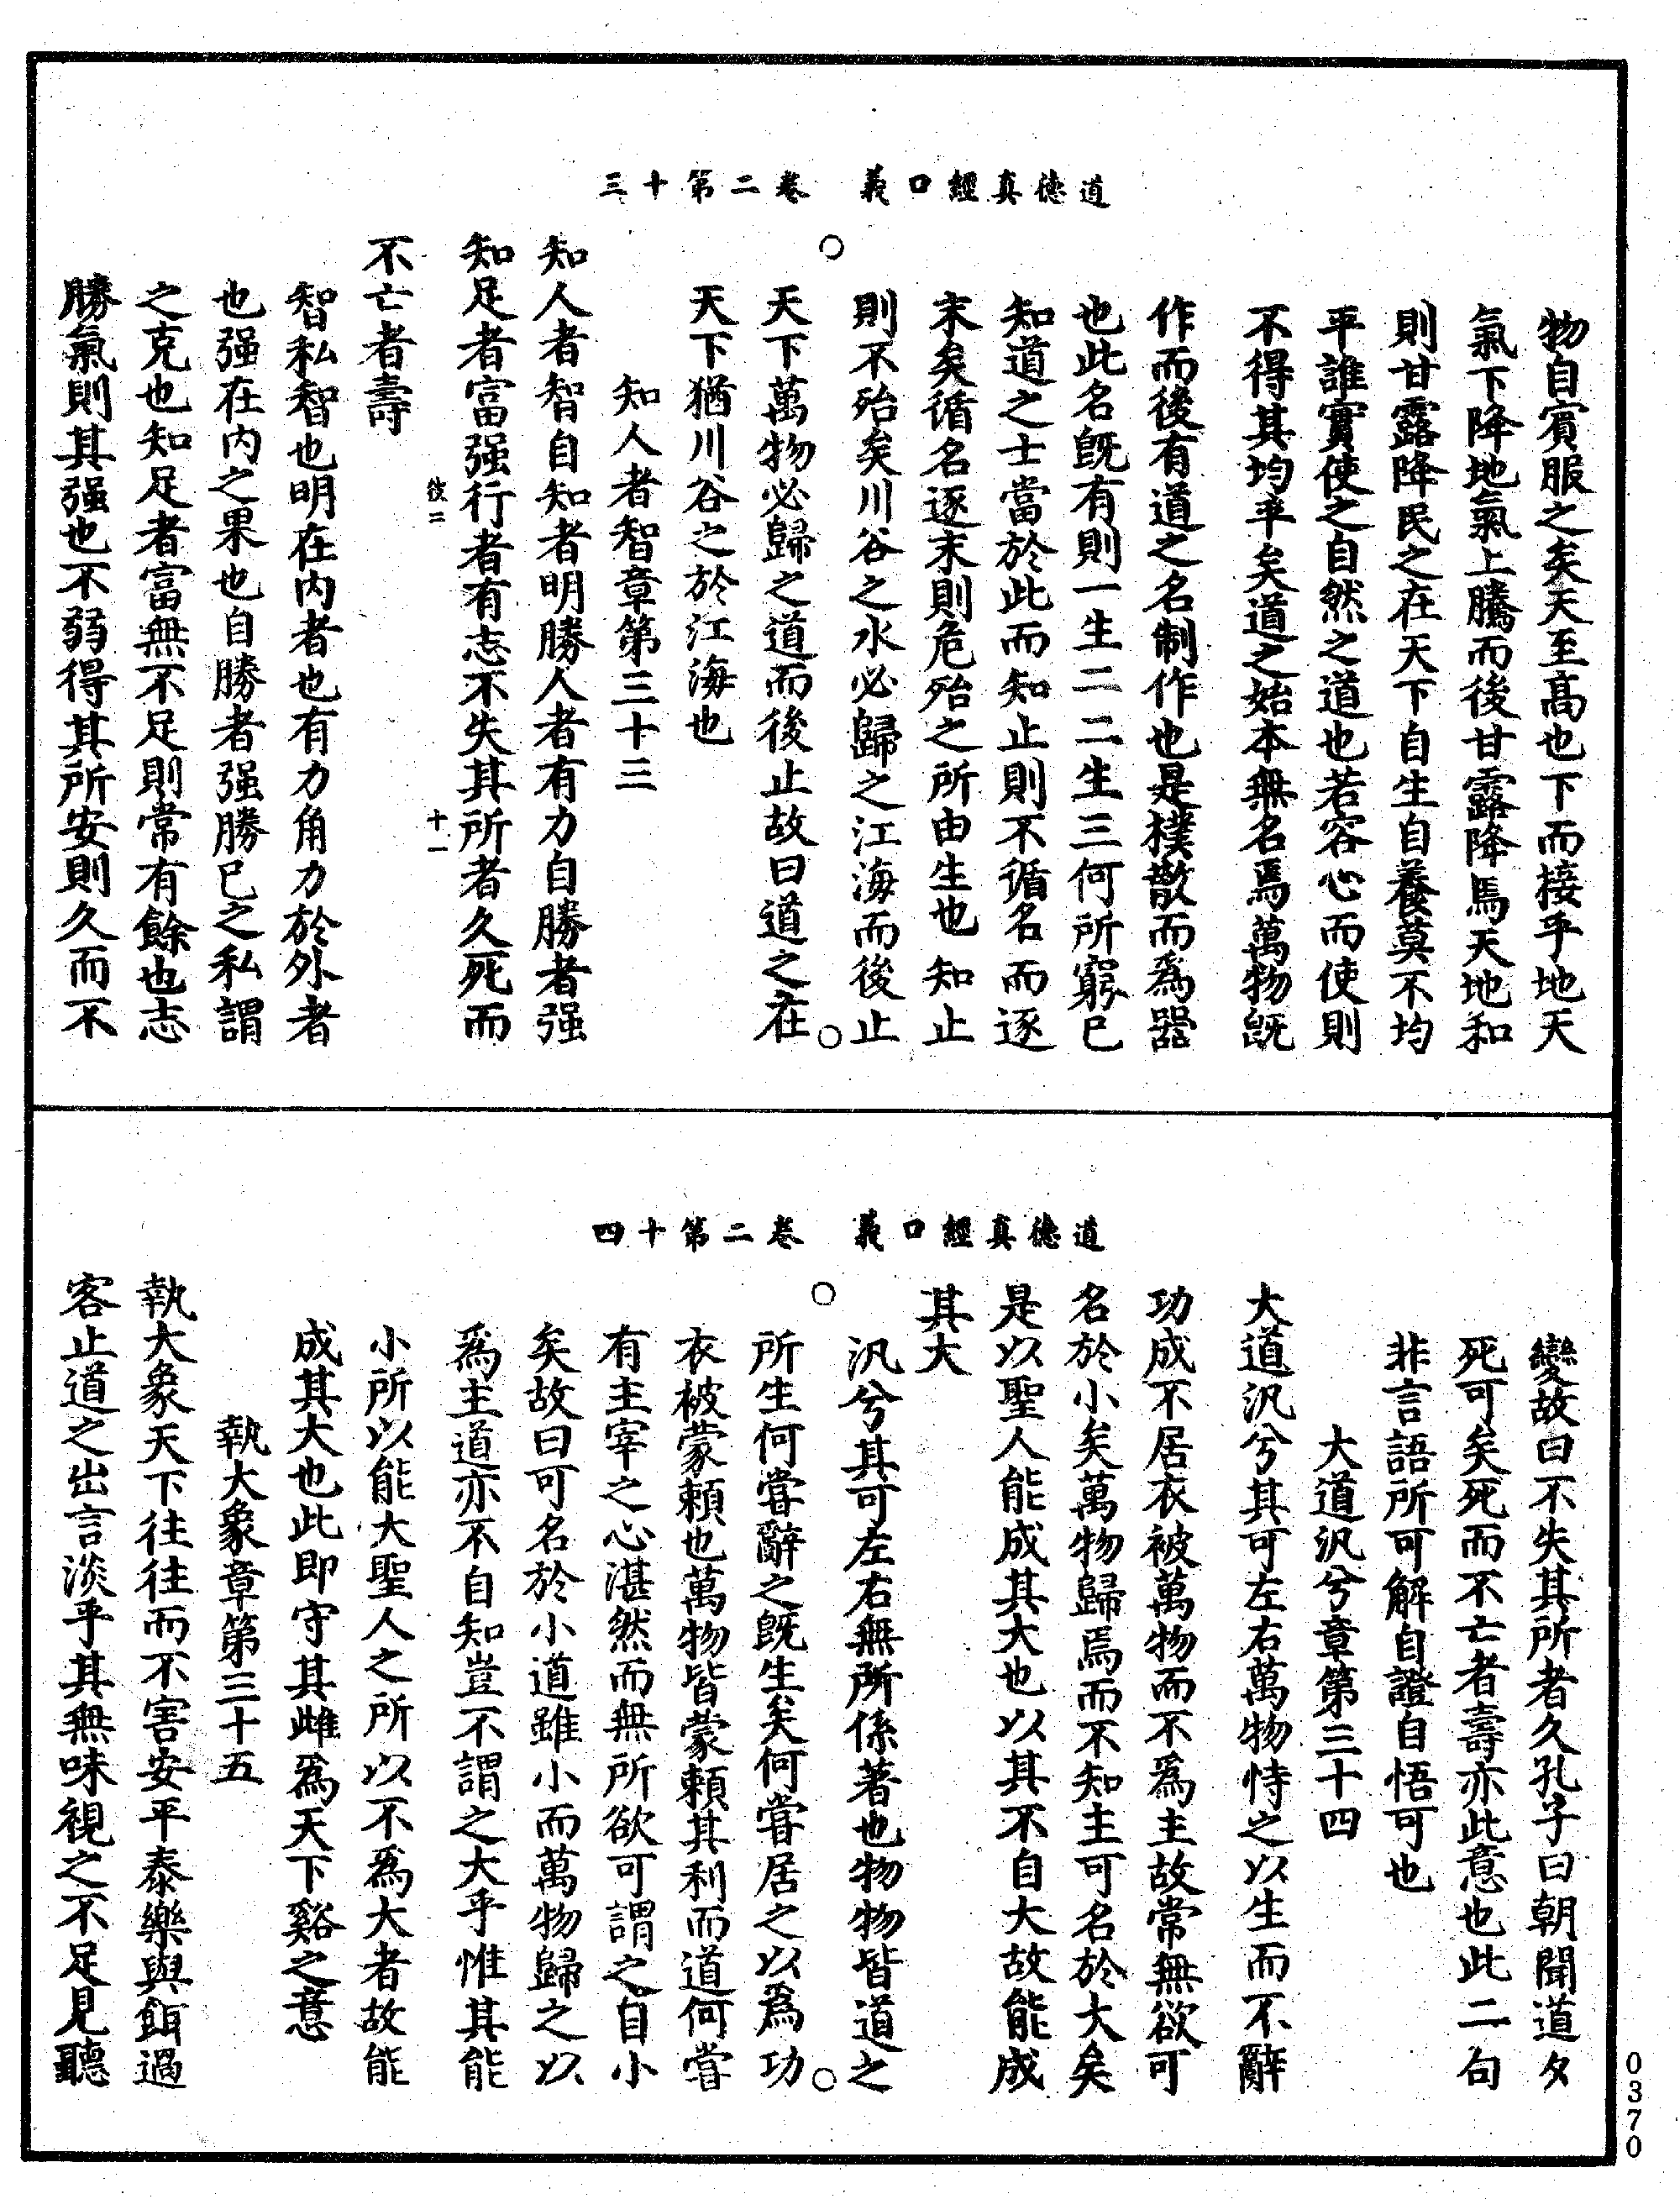 道德真經口義　卷二第十三
物自賓服之矣天至高也下而接乎地天
氣下降地氣上騰而後甘露降焉天地和
則甘露降民之在天下自生自養莫不均
平誰實使之自然之道也若容心而使則
不得其均平矣道之始本無名焉萬物旣
作而後有道之名制作也是樸散而爲器
也此名旣有則一生二二生三何所窮已
知道之士當於此而知止則不循名而逐
末矣循名逐末則危殆之所由生也知止
則不殆矣川谷之水必歸之江海而後止
天下萬物必歸之道而後止故曰道之在
天下猶川谷之於江海也
知人者智章第三十三
知人者智自知者明勝人者有力自勝者强
知足者富强行者有志不失其所者久死而
彼二　十一
不亡者壽
智私智也明在内者也有力角力於外者
也强在内之果也自勝者强勝已之私謂
之克也知足者富無不足則常有餘也志
勝氣則其强也不弱得其所安則久而不
道德真經口義　卷二第十四
變故曰不失其所者久孔子曰朝聞道夕
死可矣死而不亡者壽亦此意也此二句
非言語所可解自證自悟可也
大道汎兮章第三十四
大道汎兮其可左右萬物恃之以生而不辭
功成不居衣被萬物而不爲主故常無欲可
名於小矣萬物歸焉而不知主可名於大矣
是以聖人能成其大也以其不自大故能成
其大
汎兮其可左右無所係著也物物皆道之
所生何嘗辭之旣生矣何嘗居之以爲功
衣被蒙頼也萬物皆蒙頼其利而道何嘗
有主宰之心湛然而無所欲可謂之自小
矣故曰可名於小道雖小而萬物歸之以
爲主道亦不自知豈不謂之大乎惟其能
小所以能大聖人之所以不爲大者故能
成其大也此即守其雌爲天下谿之意
執大象章第三十五
執大象天下往往而不害安平泰樂與餌過
客止道之出言淡乎其無味視之不足見聽
0370